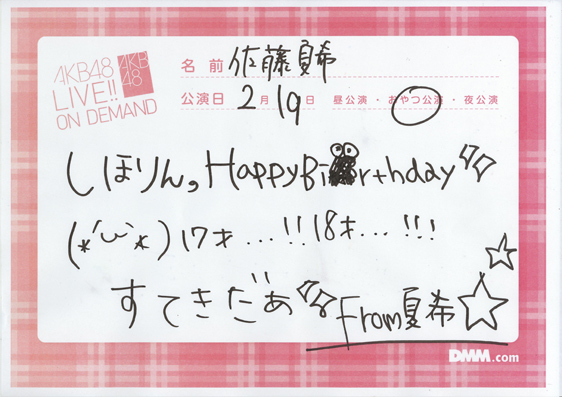 AKB48
LIVE!!
ON DEMAND
AKB
48
名前 佐藤夏希
公演日 2月19日 昼公演・おやつ公演・夜公演
しほりん、HappyBirthday
(*´ω`*) 17才...!!18才...!!!
すてきだぁ
From夏希
DMM.com